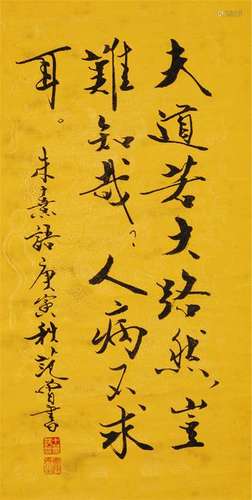 夫道若大路然,豈
難知哉?人病不求
耳。
朱熹語庚寅秋範曾書